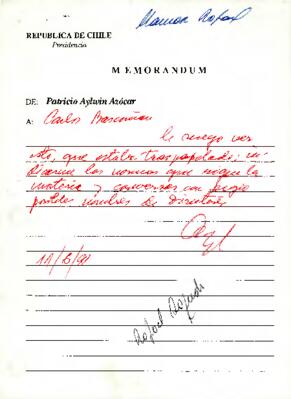 Llamar Rafael
REPUBLICA DE CHILE
Presidencia
MEMORANDUM
DE: Patricio Aylwin Azócar
A: Carlos Bascuñan
le ruego ver
esto, que estaba traspapelado; in-
dicarme las normas que regulan la
materia y conversar con
posibles nombres de Directores
11/6/91
Rafael